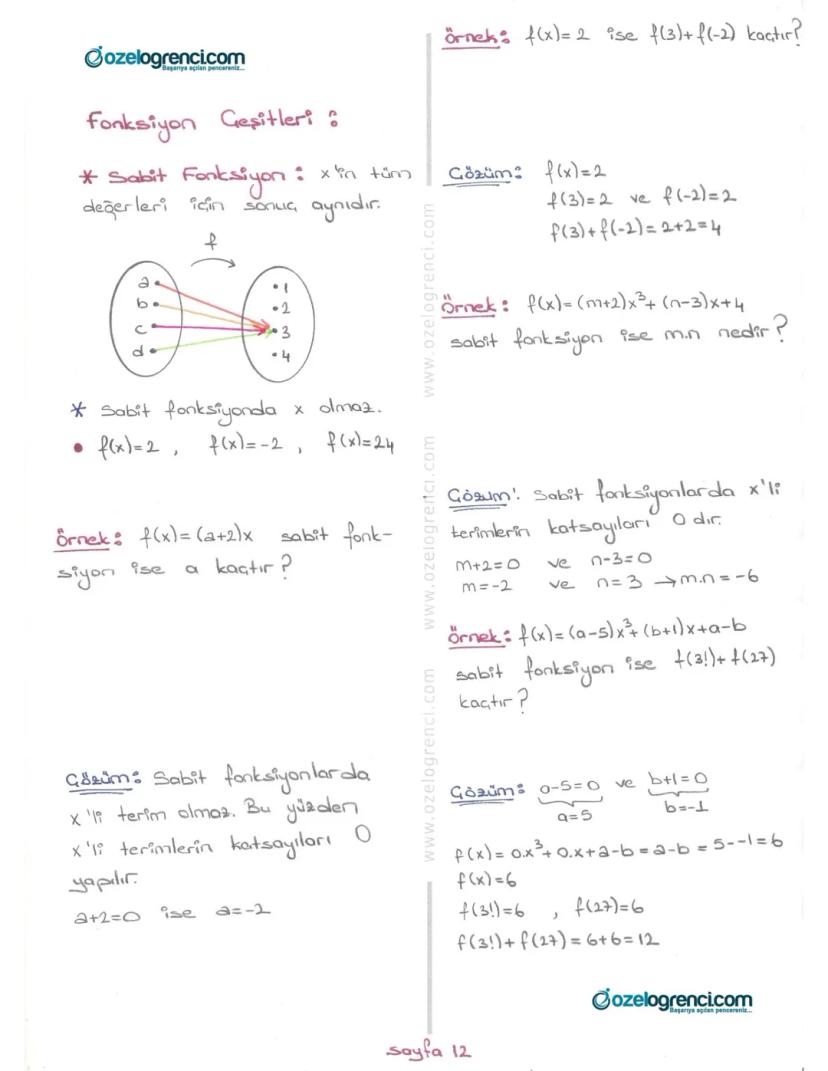 ozelogrenci.com
Başarıya açılan pencereniz...
Fonksiyon Çeşitleri :
* Sabit Fonksiyon : x'in tüm
değerleri için sonuç aynıdır.
f
a
b
c
d
1
2
3
4
* Sabit fonksiyonda x olmaz.
• f(x)=2 , f(x)=-2 , f(x)=24
Örnek: f(x)=(a+2)x sabit fonk-
siyon ise a kaçtır?
Çözüm: Sabit fonksiyonlarda
x'li terim olmaz. Bu yüzden
x'li terimlerin katsayıları 0
yapılır.
a+2=0 ise a=-2
www.ozelogrenci.com www.ozelogrenci.com www.ozelogrenci.com
Örnek: f(x)=2 ise f(3)+f(-2) kaçtır?
Çözüm: f(x)=2
f(3)=2 ve f(-2)=2
f(3)+f(-2)=2+2=4
Örnek: f(x)=(m+2)x³+(n-3)x+4
sabit fonksiyon ise m.n nedir?
Çözüm: Sabit fonksiyonlarda x'li
terimlerin katsayıları 0 dır.
m+2=0 ve n-3=0
m=-2 ve n=3 →m.n=-6
Örnek: f(x)=(a-5)x³+(b+1)x+a-b
sabit fonksiyon ise f(3!)+f(27)
kaçtır?
Çözüm: a-5=0 ve b+1=0
a=5 b=-1
f(x)=0.x³+0.x+a-b=a-b=5--1=6
f(x)=6
f(3!)=6 , f(27)=6
f(3!)+f(27)=6+6=12
ozelogrenci.com
Başarıya açılan pencereniz...
sayfa 12